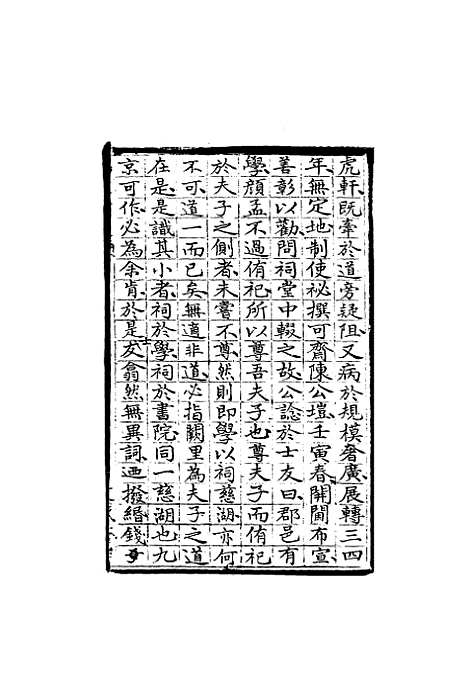 虎軒既牽於道旁疑阻又病於規模奢廣展轉三四
年無定地制使祕撰可齋陳公塏壬寅春開閫布宣
善彰以勸問祠堂中輟之故公諗於士友曰郡邑有
學顔孟不過侑祀所以尊吾夫子也尊夫子而侑祀
於夫子之側者未嘗不尊然則即學以祠慈湖亦何
不可道一而已矣無適非道必指闕里為夫子之道
在是是識其小者祠於學祠於書院同一慈湖也九
京可作必為余肯於是士友翕然無異詞迺撥緡錢